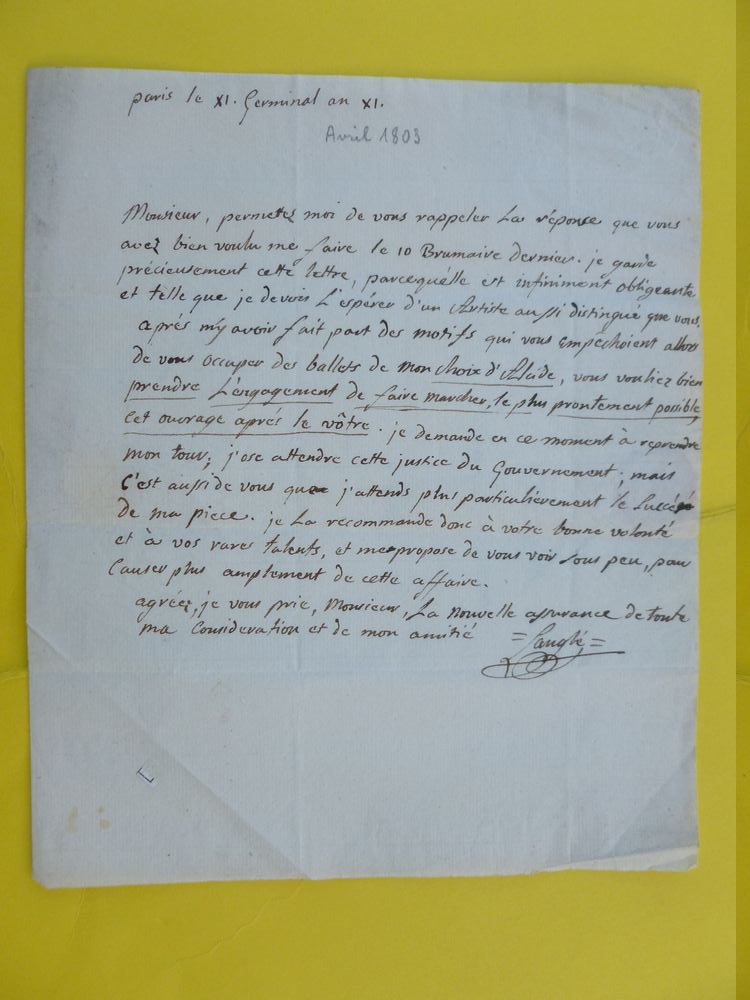 paris le XI. Germinal an XI.
Avril 1803
Monsieur, permettez moi de vous rappeler La réponse que vous
avez bien voulu me faire le 10 Brumaire dernier. je garde
précieusement cette lettre, parcequ'elle est infiniment obligeante
et telle que je devois L'espérer d'un Artiste aussi distingué que vous.
après m'y avoir fait part des motifs qui vous empêchoient allors
de vous occuper des ballets de mon choix d'Alcide, vous vouliez bien
prendre L'engagement de faire marcher, le plus prontement possible,
cet ouvrage après le vôtre. je demande en ce moment à reprendre
mon tour; j'ose attendre cette justice du Gouvernement; mais
C'est aussi de vous que j'attends plus particulièrement le Succès
de ma piece. je La recommande donc à votre bonne volonté
et à vos rares talents, et me propose de vous voir sous peu, pour
Causer plus amplement de cette affaire.
agréez, je vous prie, Monsieur, La nouvelle assurance de toute
ma Consideration et de mon amitié = Langlé, =